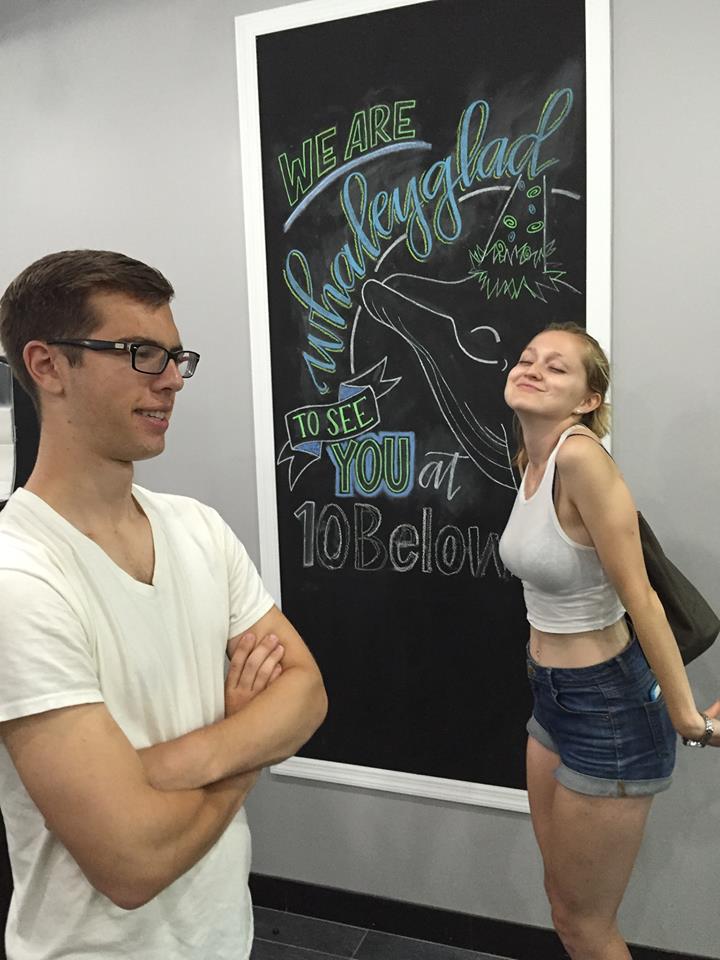 WE ARE
whaleyglad
TO SEE
YOU at
10Below